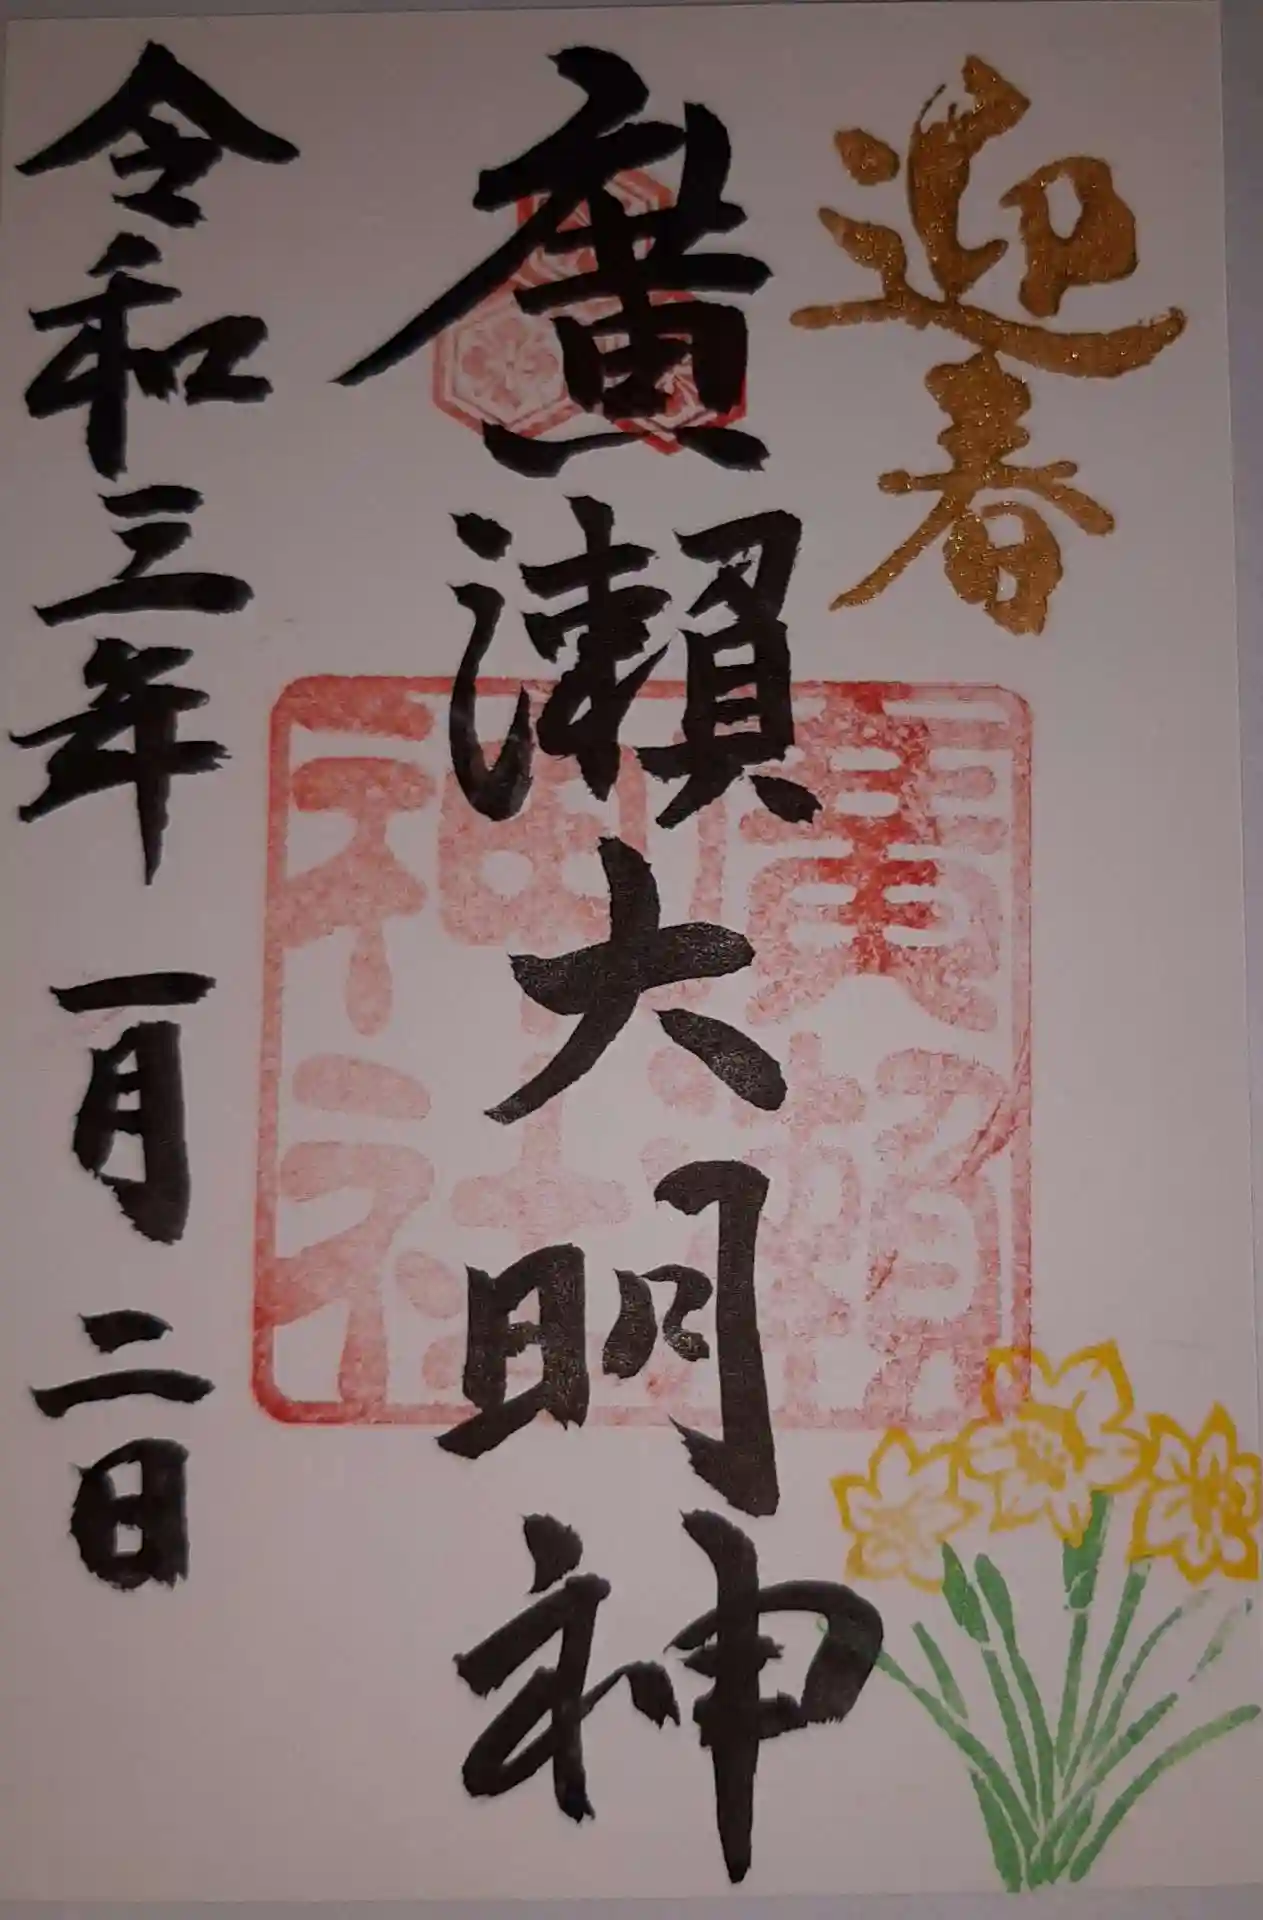 迎春
廣瀬大明神
廣瀬
神社
令和三年 一月 二日